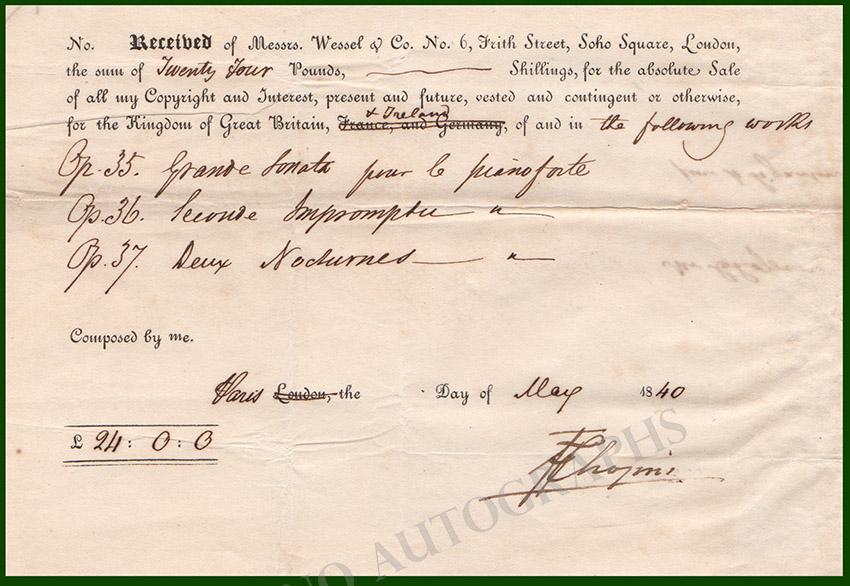 No. Received of Messrs. Wessel & Co. No. 6, Frith Street, Soho Square, London,
the sum of Twenty Four Pounds, ——— Shillings, for the absolute Sale
of all my Copyright and Interest, present and future, vested and contingent or otherwise,
& Ireland
for the Kingdom of Great Britain, France, and Germany, of and in the following works
Op. 35. Grande Sonata pour le pianoforte
Op. 36. Seconde Impromptu — " —
Op. 37. Deux Nocturnes — " —
Composed by me.
Paris London, the Day of May 1840
£ 24 : 0 : 0
FChopin
NO AUTOGRAPHS